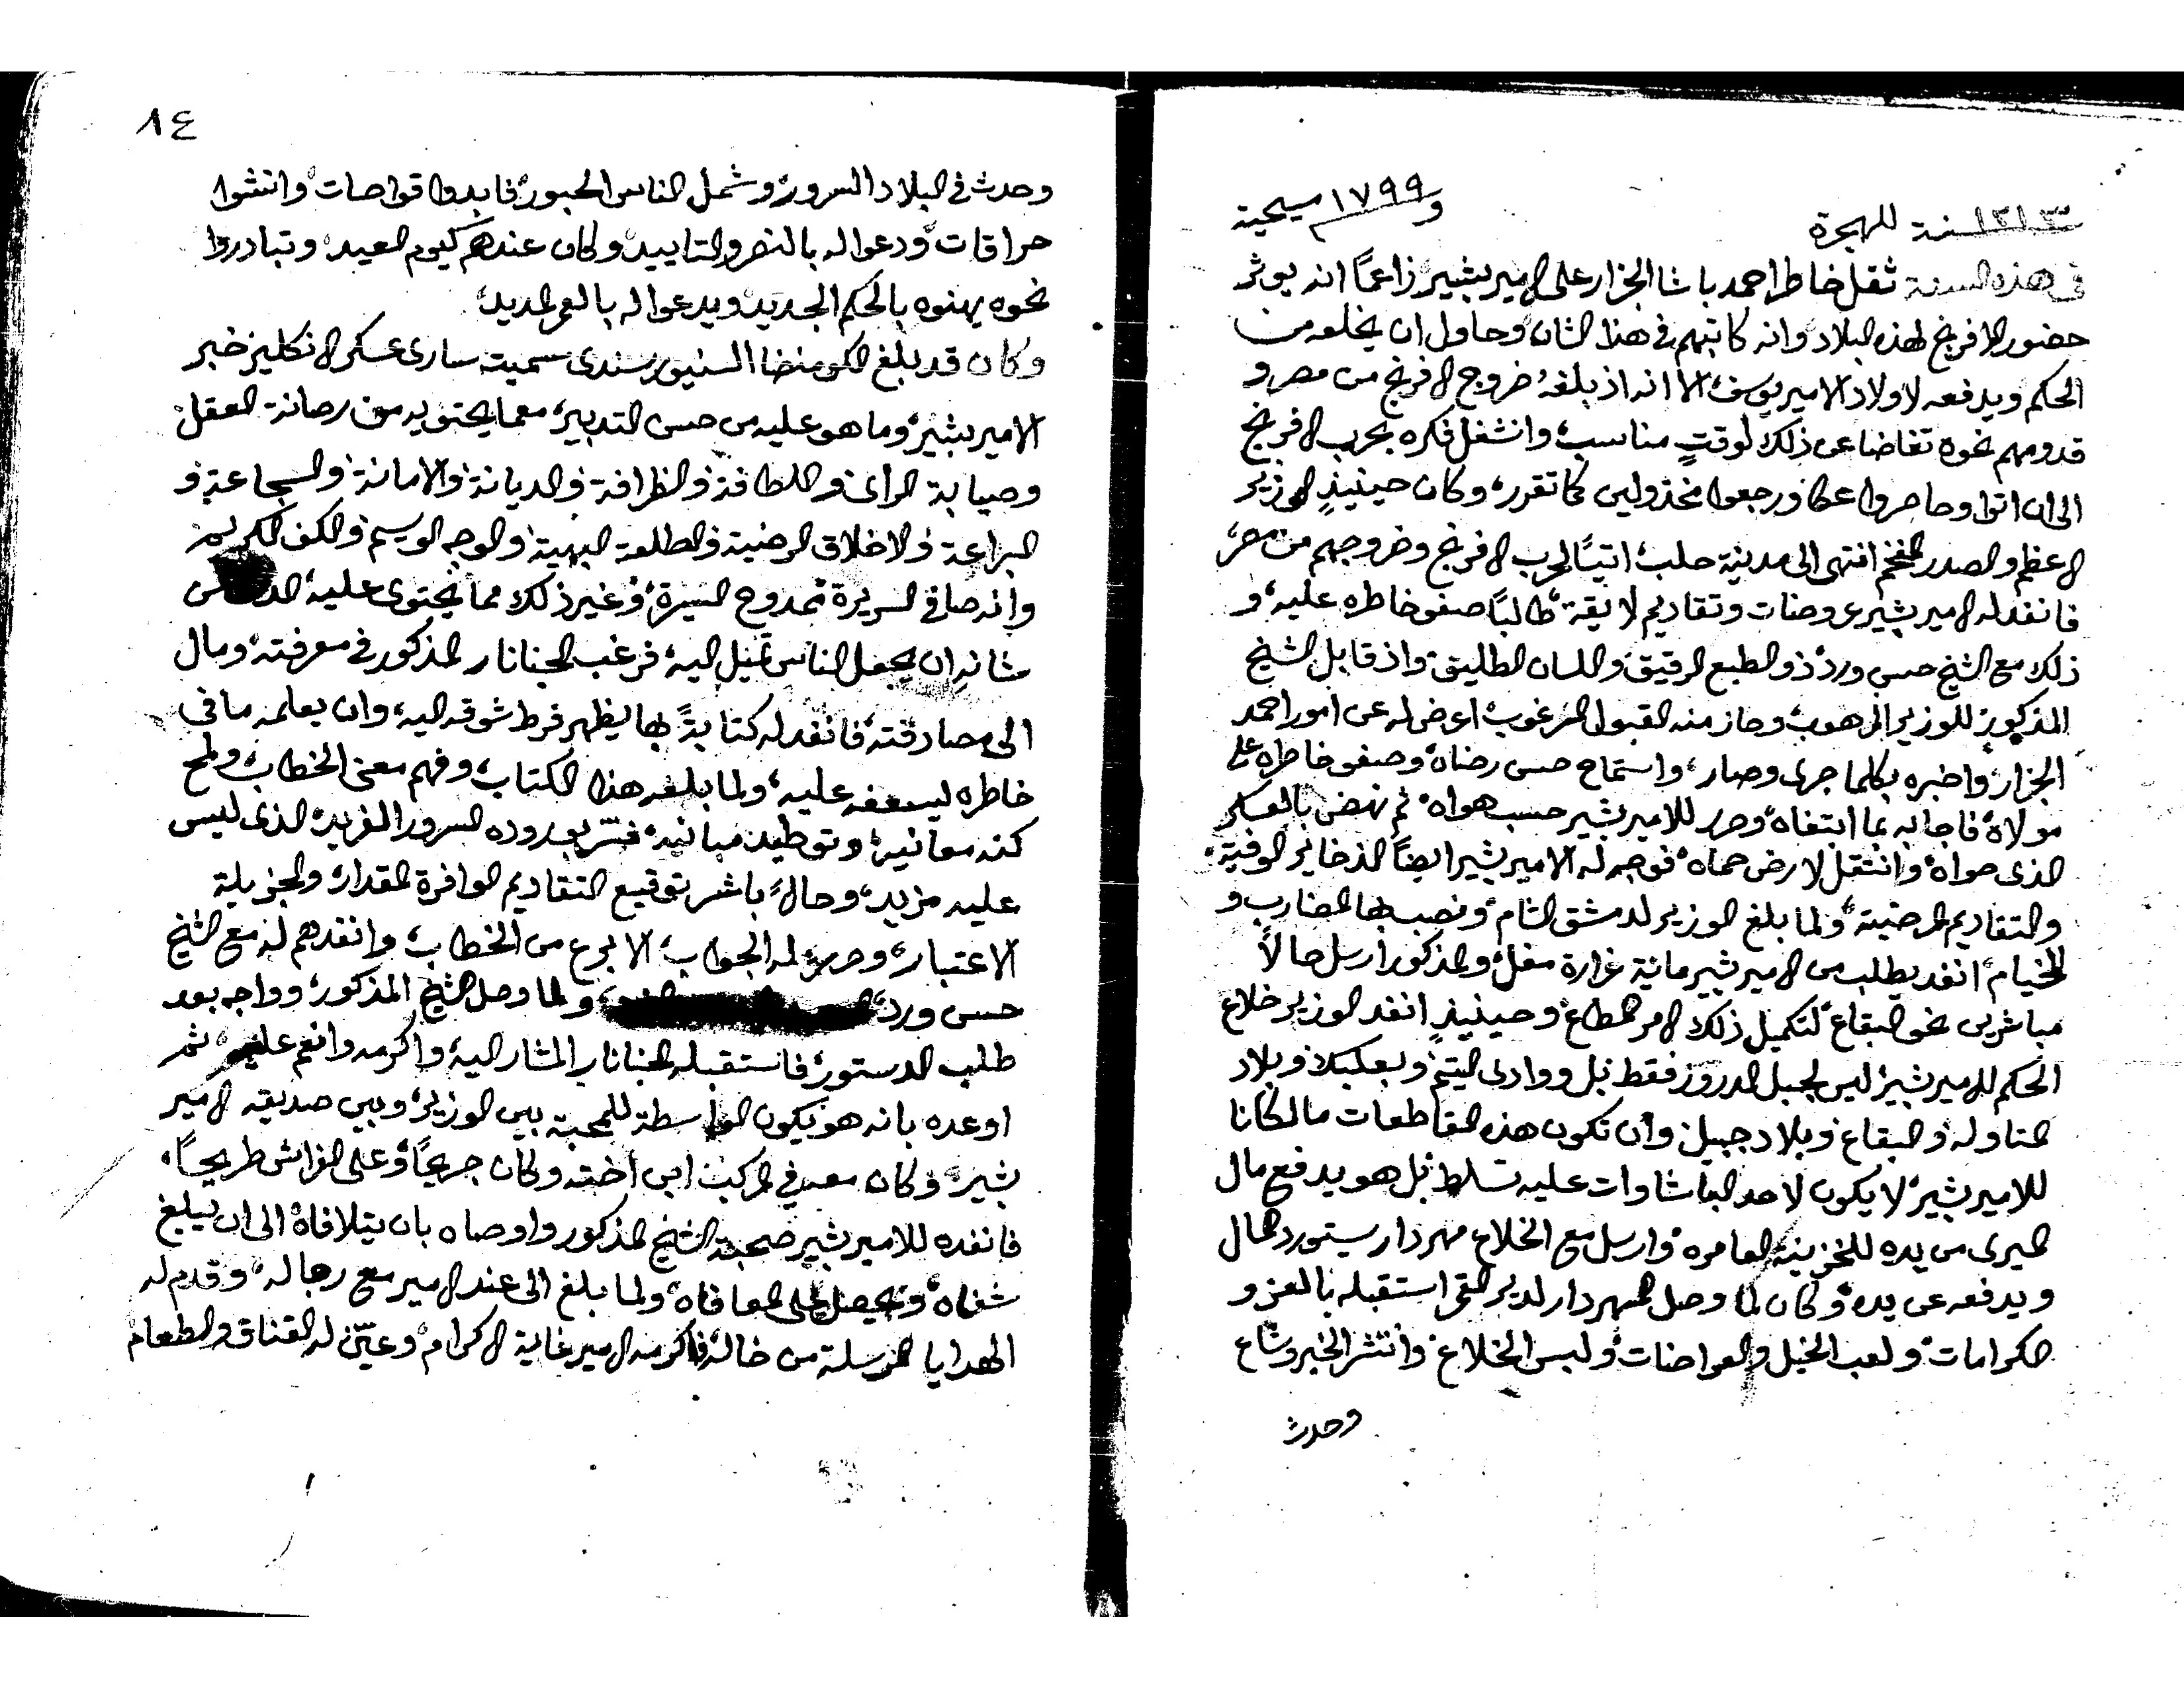 سنة ١٢١٣ للهجرة و١٧٩٩ مسيحية
في هذه السنة ثقل خاطر احمد باشا الجزار على الامير بشير زاعمًا انه يوثر
حضور الافرنج لهذه البلاد وانه كاتبهم في هذا الشان وحاول ان يخلعه من
الحكم ويدفعه لاولاد الامير يوسف، الا انه اذ بلغه خروج الافرنج من مصر و
قدومهم نحوه تغاضا عن ذلك لوقتٍ مناسب، وانشغل فكره بحرب الافرنج
الى ان اتوا وحاصروا عكا ورجعوا مخذولين كما تقرر، وكان حينيذٍ الوزير
الاعظم والصدر المفخم انتهى الى مدينة حلب، اتيًا لحرب الافرنج وخروجهم من مصر،
فانفد له الامير بشير عروضات وتقاديم لايقة، طالبًا صفو خاطره عليه، و
ذلك مع الشيخ حسن ورد ذو الطبع الرقيق واللسان الطليق، واذ قابل الشيخ
المذكور للوزير المرهوب، وحاز منه القبول المرغوب، اعرض له عن امور احمد
الجزار، واخبره بكلما جرى وصار، واستماح حسن رضاه، وصفو خاطره على
مولاه، فاجابه بما ابتغاه، وحرر للامير بشير حسب هواه، ثم نهض بالعسكر
الذى حواه، وانتقل لارض حماه، فوجه له الامير بشير ايضًا الذخاير الوفية،
والتقاديم المرضية، ولما بلغ الوزير لدمشق الشام، ونصب بها المضارب و
الخيام، انفد يطلب من الامير بشير ماية غرارة مغل، والمذكور ارسل حالاً
مباشرين نحو البقاع، لتكميل ذلك الامر المطاع، وحينيذٍ انفد الوزير خلاع
الحكم للامير بشير، ليس لجبل الدروز فقط، بل ووادى التيم، وبعلبك، وبلاد
المتاوله، والبقاع، وبلاد جبيل، وان تكون هذه المقاطعات مالكانا
للامير بشير، لا يكون لاحد الباشاوات عليه تسلط، بل هو يدفع مال
الميرى من يده للخزينة العامره، وارسل مع الخلاع مهردار سيتورد المال
ويدفعه عن يده، وكان لما وصل المهردار لدير القمر استقبله بالعز و
الكرامات، ولعب الخيل والعراضات، ولبس الخلاع، وانتشر الخبر وشاع
وحدث
٨٤
وحدث في البلاد السرور، وشمل الناس الحبور، فابدوا قواصات، وانشوا
حراقات، ودعوا له بالنصر والتاييد، وكان عندهم كيوم العيد، وتبادروا
نحوه يهنوه بالحكم الجديد، ويدعوا له بالعمر المديد،
وكان قد بلغ الكومنضا السنيور سندى سميت سارى عسكر الانكليز خبر
الامير بشير، وما هو عليه من حسن التدبير، معما يحتويه من رصانة العقل
وصيابة الراى، واللطافة، والظرافة، والديانة، والامانة، والشجاعة، و
البراعة، والاخلاق الرضية، والطلعة البهية، والوجه الوسيم، والكف الكريم
وانه صافي السريرة، ممدوح السيرة، وغير ذلك مما يحتوى عليه
شانه ان يجعل الناس تميل اليه، فرغب الجنانار المذكور في معرفته، ومال
الى مصادقته، فانفد له كتابةً بها يظهر فرط شوقه اليه، وان يعلمه ما في
خاطره ليسعفه عليه، ولما بلغه هذا الكتاب، وفهم معنى الخطاب، ولمح
كنه معانيه، وتوطيد مبانيه، فسّر بوروده السرور المفريد، الذى ليس
عليه مزيد، وحالاً باشر بتوقيع التقاديم الوافرة المقدار، والجزيلة
الاعتبار، وحرر له الجواب، الابرع من الخطاب، وانفدهم له مع الشيخ
حسن ورد، ولما وصل الشيخ المذكور، وواجه بعد
طلب الدستور، فاستقبله الجنانار المشار اليه، واكرمه وانعم عليه، ثم
اوعده بانه هو يكون الواسطة للمحبة بين الوزير، وبين صديقه الامير
بشير، وكان معه في المركب ابن اخته، وكان جريحًا، وعلى الفراش طريحًا،
فانفده للامير بشير صحبة الشيخ المذكور، واوصاه بان يتلافاه الى ان يبلغ
شفاه، ويحصل على المعافاه، ولما بلغ الى عند الامير مع رجاله، وقدم له
الهدايا المرسلة من خاله، فاكرمه الامير غاية الاكرام، وعيّن له القناق والطعام